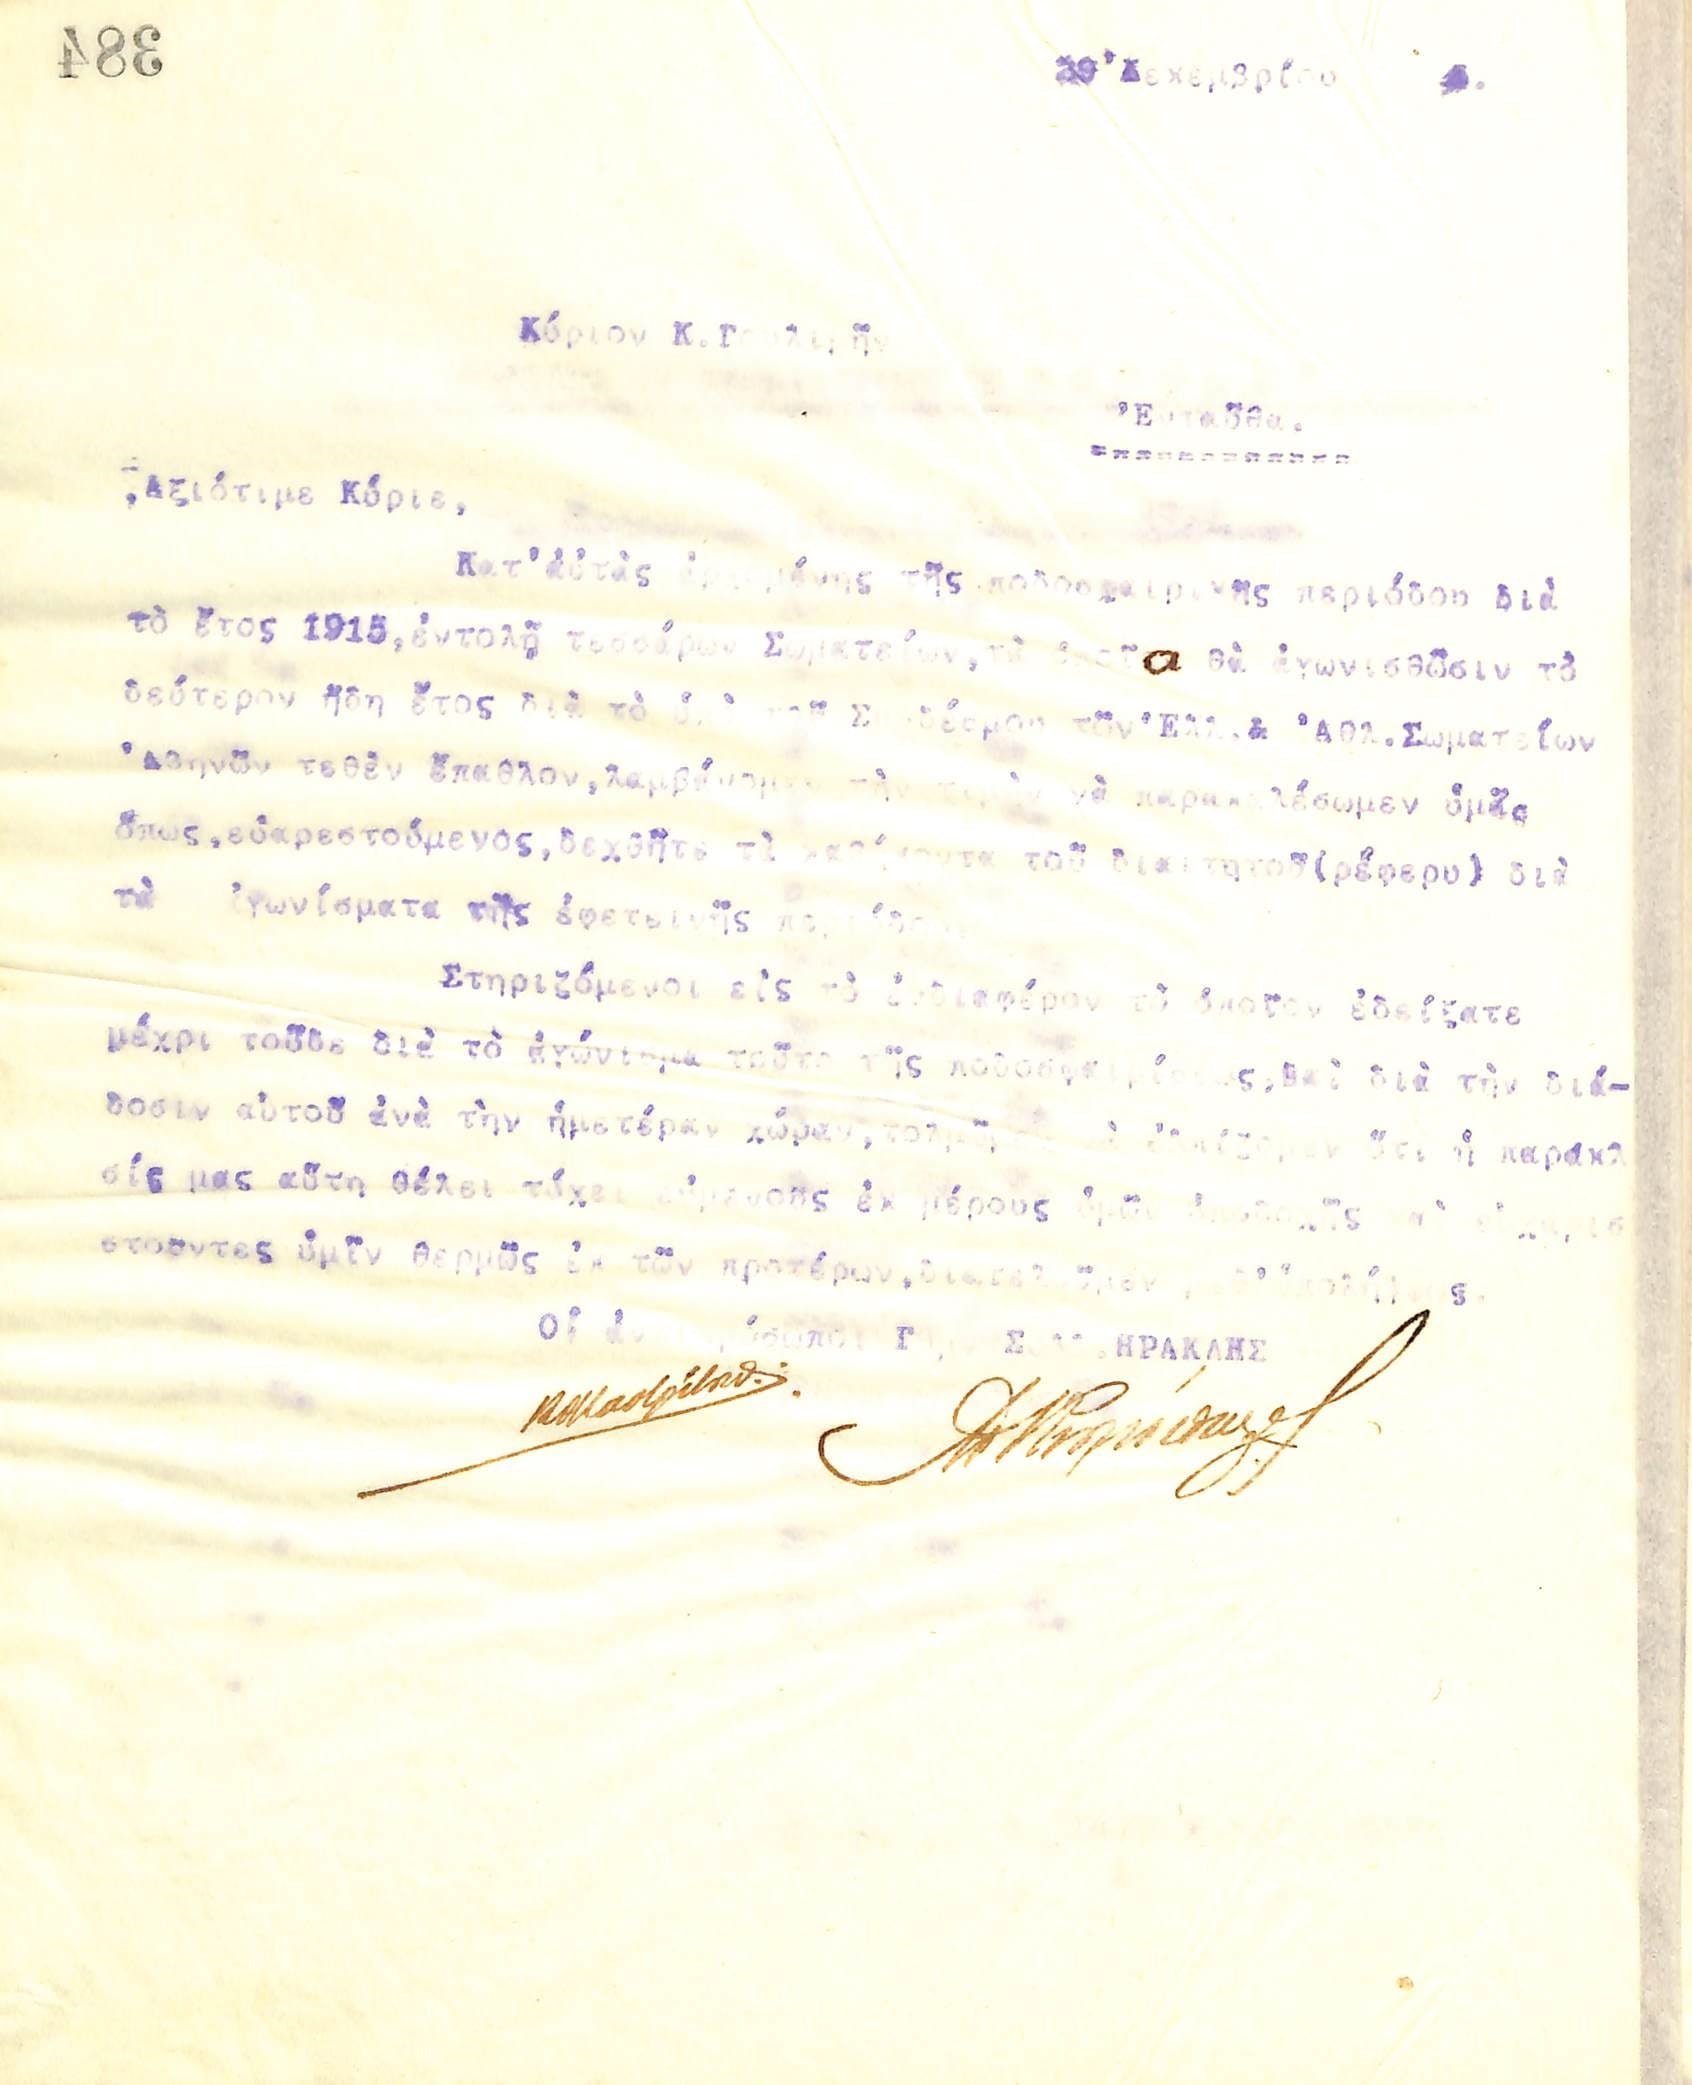 384
Δεκεμβρίου
Κύριον Κ.
Ἐνταῦθα.
Ἀξιότιμε Κύριε,
Κατ'αὐτὰς τῆς ποδοσφαιρικῆς περιόδου διὰ
τὸ ἔτος 1915,ἐντολῇ τεσσάρων Σωματείων,τὰ ὁποῖα θὰ ἀγωνισθῶσιν τὸ
δεύτερον ἤδη ἔτος διὰ τὸ ὑπὸ τοῦ Συνδέσμου τῶν Ἑλλ.& Ἀθλ.Σωματείων
Ἀθηνῶν τεθὲν ἔπαθλον,λαμβάνομεν τὴν τιμὴν νὰ παρακαλέσωμεν ὑμᾶς
ὅπως,εὐαρεστούμενος,δεχθῆτε τὰ καθήκοντα τοῦ διαιτητοῦ(ρέφερυ) διὰ
τὰ ἀγωνίσματα τῆς ἐφετεινῆς περιόδου.
Στηριζόμενοι εἰς τὸ ἐνδιαφέρον τὸ ὁποῖον ἐδείξατε
μέχρι τοῦδε διὰ τὸ ἀγώνισμα τοῦτο τῆς ποδοσφαιρίσεως,καὶ διὰ τὴν διά-
δοσιν αὐτοῦ ἀνὰ τὴν ἡμετέραν χώραν,τολμῶμεν νὰ ἐλπίζομεν ὅτι ἡ παρακλ
σίς μας αὕτη θέλει τύχει εὐμενοῦς ἐκ μέρους ὑμῶν ὑποδοχῆς καὶ εὐχαρισ
στοῦντες ὑμῖν θερμῶς ἐκ τῶν προτέρων,διατελοῦμεν μεθ'ὑπολήψεως.
Οἱ ἀντιπρόσωποι Γυμν. Συλλ.ΗΡΑΚΛΗΣ